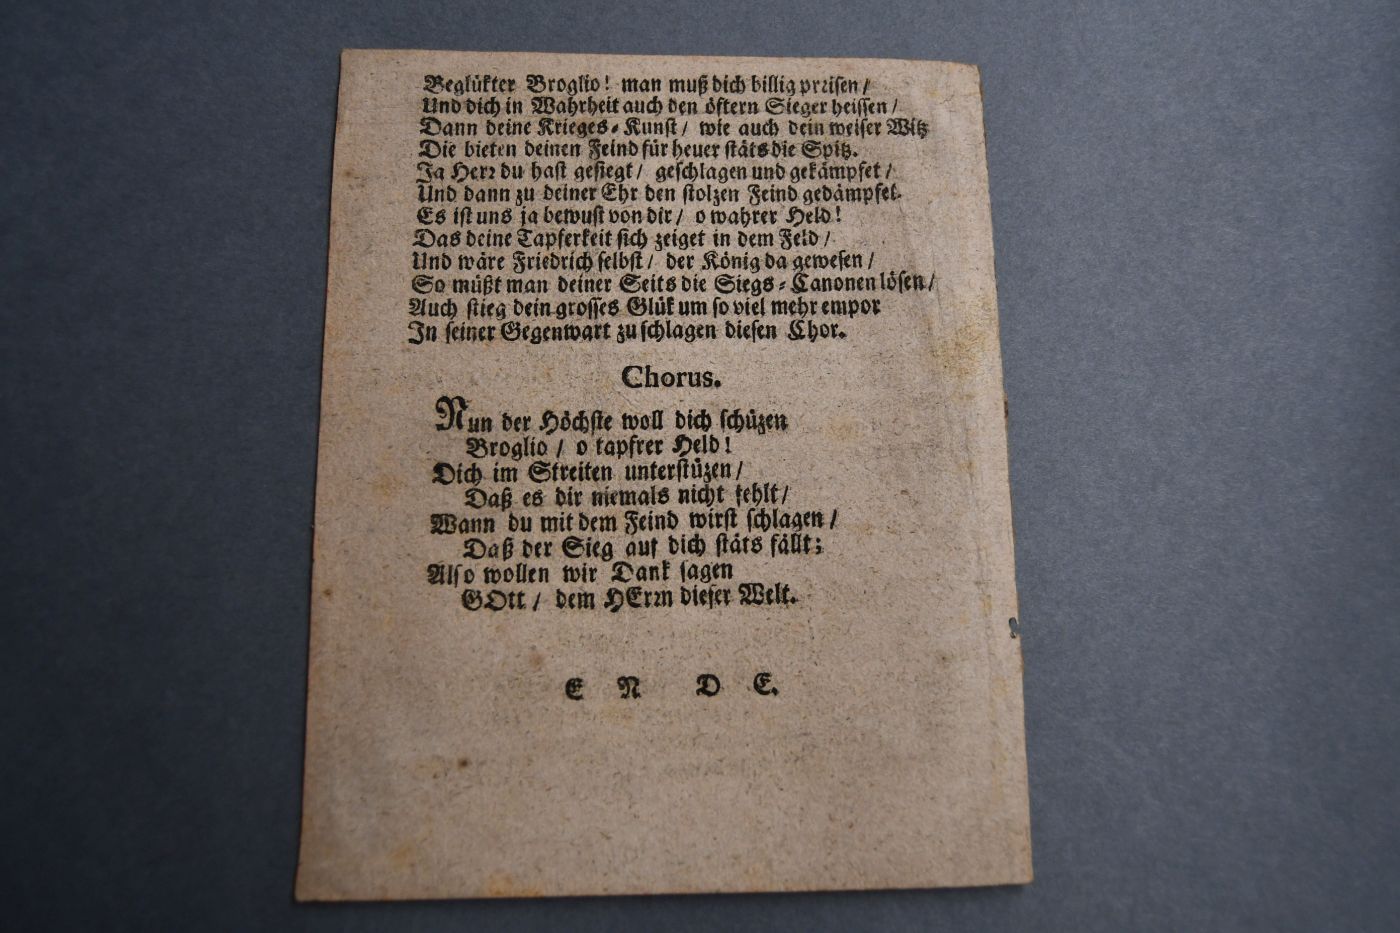 Beglükter Broglio! man muß dich billig preisen /
Und dich in Wahrheit auch den öftern Sieger heissen /
Dann deine Krieges-Kunst / wie auch dein weiser Witz
Die bieten deinen Feind für heuer stäts die Spitz.
Ja Herr du hast gesiegt / geschlagen und gekämpfet /
Und dann zu deiner Ehr den stolzen Feind gedämpfet.
Es ist uns ja bewust von dir / o wahrer Held!
Das deine Tapferkeit sich zeiget in dem Feld /
Und wäre Friedrich selbst / der König da gewesen /
So müßt man deiner Seits die Siegs-Canonen lösen /
Auch stieg dein grosses Glük um so viel mehr empor
In seiner Gegenwart zu schlagen diesen Chor.
Chorus.
Nun der Höchste woll dich schüzen
Broglio / o tapfrer Held!
Dich im Streiten unterstüzen /
Daß es dir niemals nicht fehlt /
Wann du mit dem Feind wirst schlagen /
Daß der Sieg auf dich stäts fällt;
Also wollen wir Dank sagen
GOtt / dem HErrn dieser Welt.
E N D E.